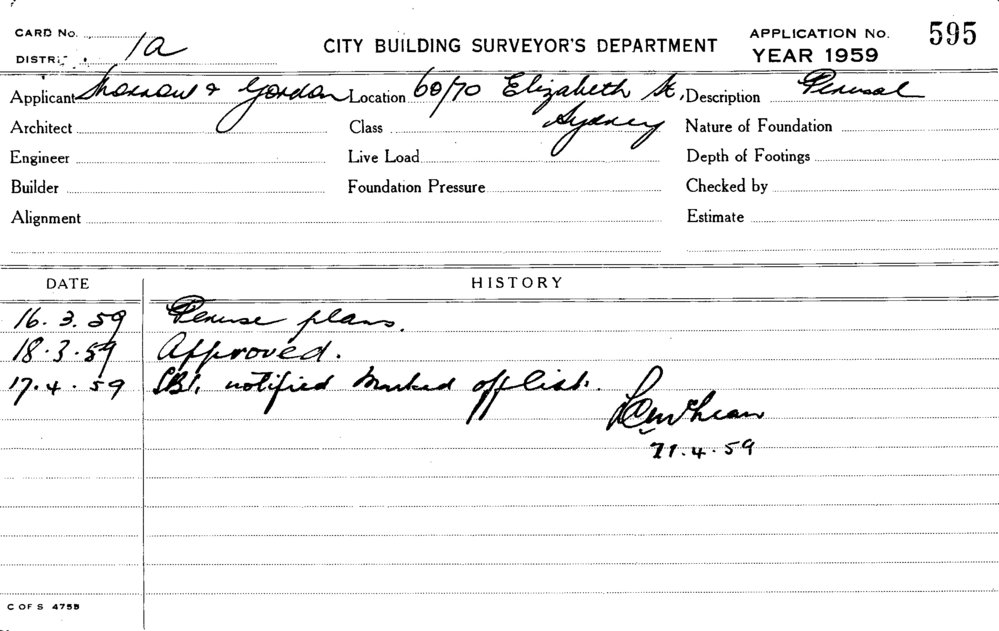 CARD No.
DISTRICT 1a
CITY BUILDING SURVEYOR'S DEPARTMENT
APPLICATION No. 595
YEAR 1959
Applicant Morrow & Gordon Location 60/70 Elizabeth St, Sydney Description Perusal
Architect Class Nature of Foundation
Engineer Live Load Depth of Footings
Builder Foundation Pressure Checked by
Alignment Estimate
DATE HISTORY
16.3.59 Peruse plans.
18.3.59 Approved.
17.4.59 notified marked off list.
21.4.59
C OF S 475B